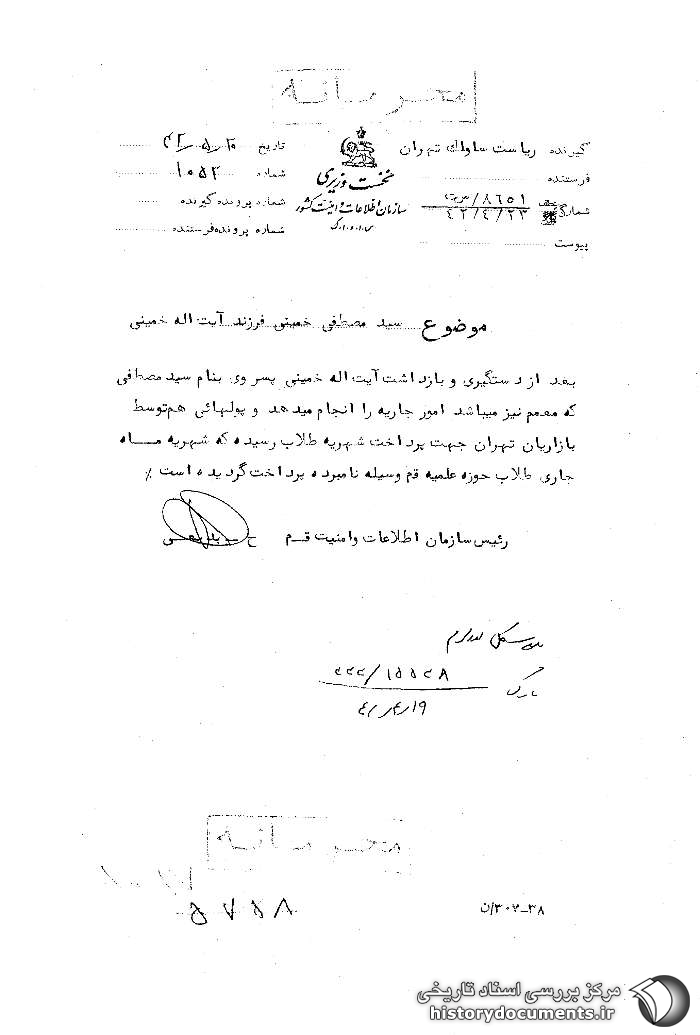 محرمانه
گیرنده ریاست ساواک تهران
فرستنده
شماره ۸۶۵۱/
۴۲/۴/۲۳
پیوست
نخست وزیری
سازمان اطلاعات و امنیت کشور
س.ا.و.ا.ک
تاریخ
شماره ۱۰۵۲
شماره پرونده گیرنده
شماره پرونده فرستنده
موضوع سید مصطفی خمینی فرزند آیت اله خمینی
بعد از دستگیری و بازداشت آیت اله خمینی پسر وی بنام سید مصطفی
که معمم نیز میباشد امور جاریه را انجام میدهد و پولهائی هم توسط
بازاریان تهران جهت پرداخت شهریه طلاب رسیده که شهریه مــاه
جاری طلاب حوزه علمیه قم وسیله نامبرده پرداخت گردیده است ٪
رئیس سازمان اطلاعات و امنیت قـم
محرمانه
۵۷۵۸
۳۸-۳۰۲/ن
مرکز بررسی اسناد تاریخی
historydocuments.ir